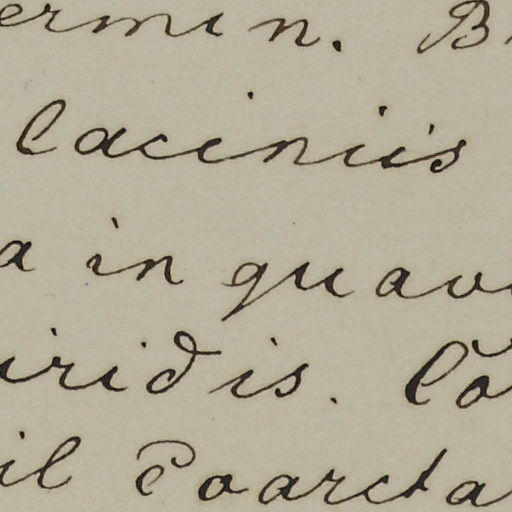 ermin. B
laciniis
a in quav
iridis. Co
il coarcta